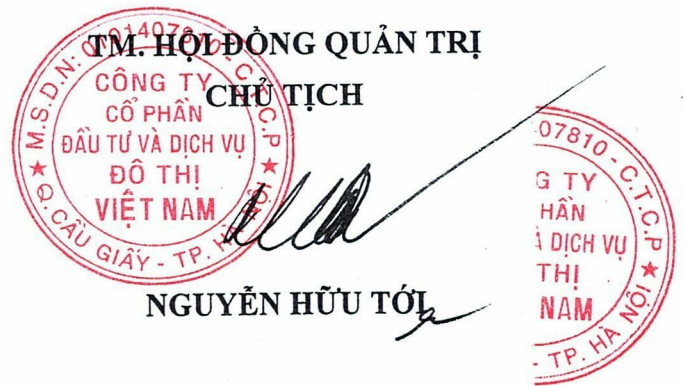 TM. HỘI ĐỒNG QUẢN TRỊ
CHỦ TỊCH
M.S.D.N: 0101407810-C.T.C.P
CÔNG TY
CỔ PHẦN
ĐẦU TƯ VÀ DỊCH VỤ
ĐÔ THỊ
VIỆT NAM
Q. CẦU GIẤY - TP. HÀ NỘI
NGUYỄN HỮU TỚI
07810-C.T.C.P
G TY
HẦN
À DỊCH VỤ
THỊ
NAM
- TP. HÀ NỘI